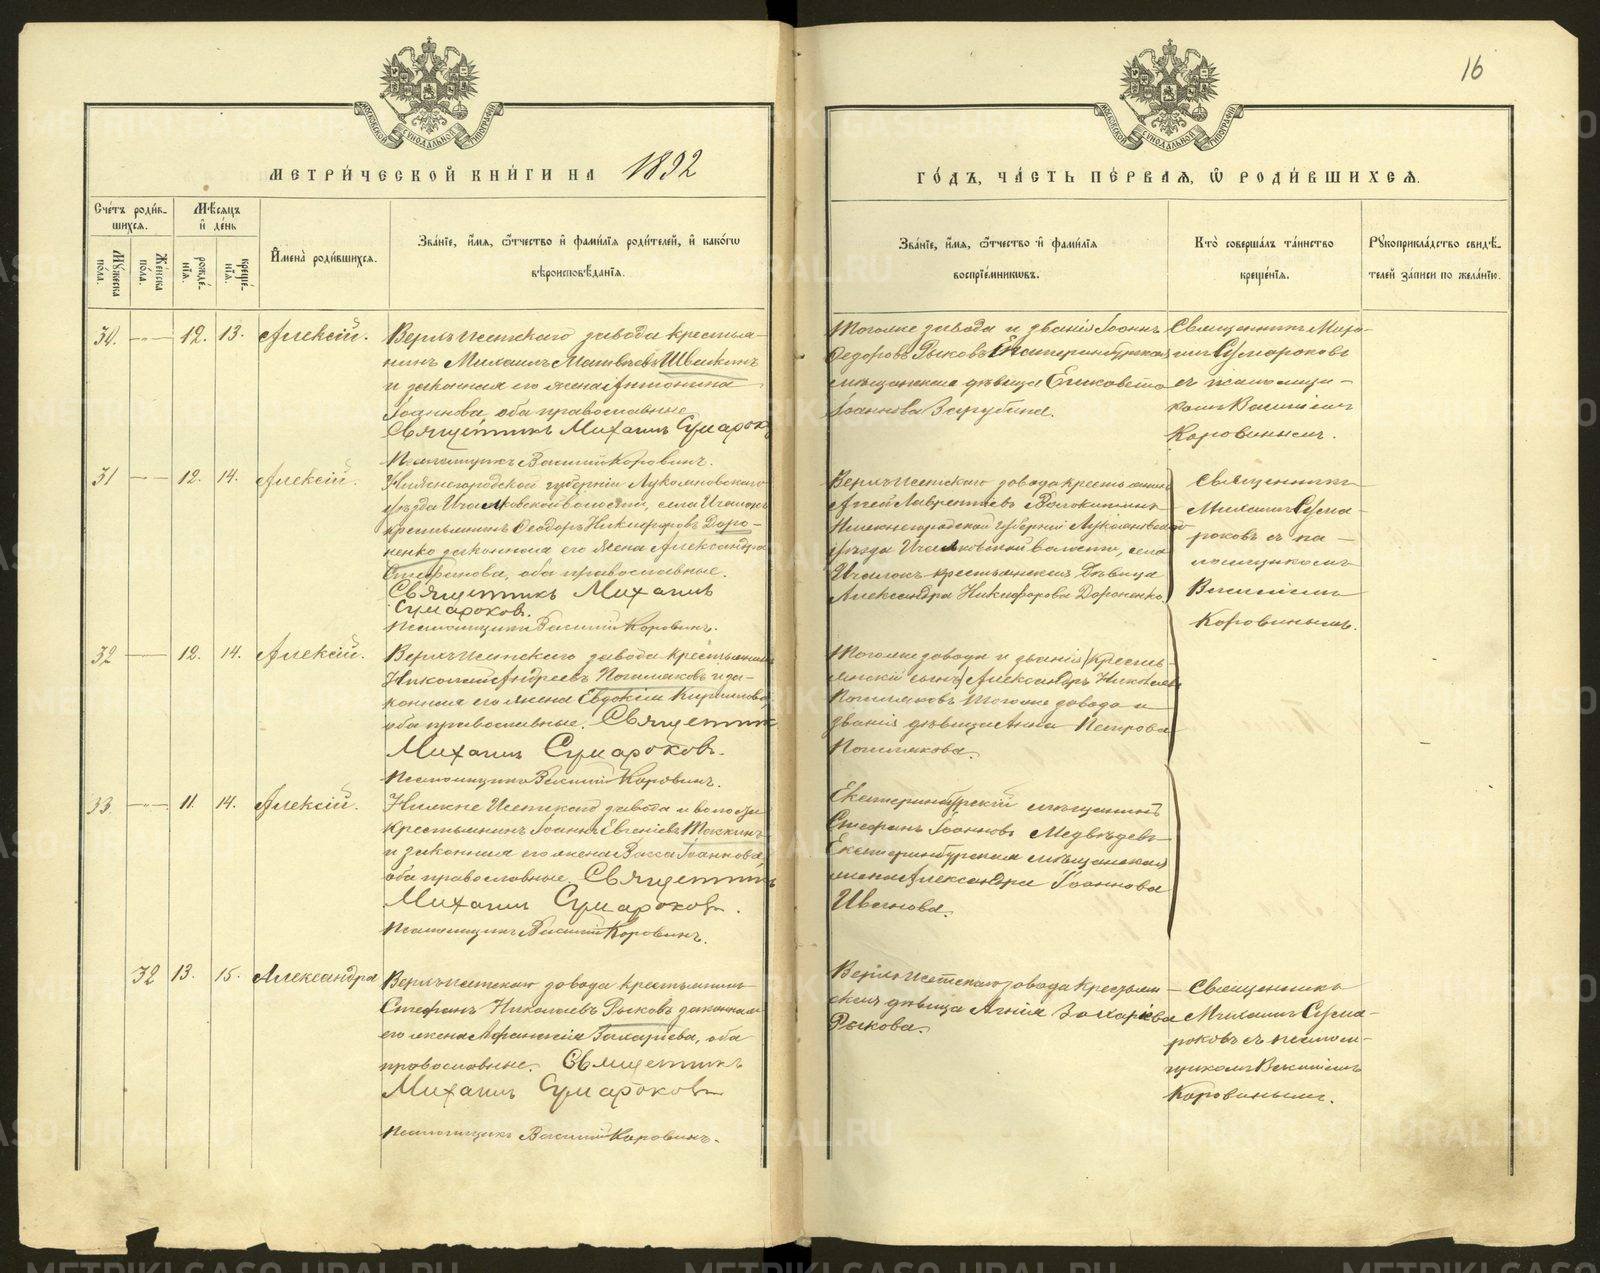 16
МЕТРИ́ЧЕСКОЙ КНИ́ГИ НА 1892
ГО́ДЪ, ЧА́СТЬ ПЕ́РВАЯ, Ѡ РОДИ́ВШИХСѦ.
Сче́тъ роди́в-
шихсѧ.
Мꙋ́жеска по́ла.
Же́нска по́ла.
Мѣ́сѧцъ
и҆ де́нь
рожде́-
нїѧ.
креще́-
нїѧ.
И҆мена̀ роди́вшихсѧ.
Зва́нїе, и҆́мѧ, ѻ҆́тчество и҆ фами́лїѧ роди́телей, и҆ како́гѡ
вѣроисповѣ́данїѧ.
Зва́нїе, и҆́мѧ, ѻ҆́тчество и҆ фами́лїѧ
воспрїе́мникѡвъ.
Кто̀ соверша́лъ та́инство
креще́нїѧ.
Рꙋкоприкла́дство свидѣ́-
телей за́писи по жела́нїю.
30. — 12. 13. Алексій.
Верхъ-Исетскаго завода крестья-
нинъ Михаилъ Матвѣевъ Швалкинъ
и законная его жена Антонина
Іоаннова, оба православные.
Священникъ Михаилъ Сумароковъ
Псаломщикъ Василий Коровинъ.
Тогоже завода и званія Іоаннъ
Федоровъ Рыковъ Екатеринбургская
мѣщанская дѣвица Елисавета
Іоаннова Зарубина.
Священникъ Миха-
илъ Сумароковъ
съ псаломщи-
комъ Василіемъ
Коровинымъ.
31 — 12. 14. Алексій.
Нижнегородской губерніи Лукояновскаго
уѣзда Ичалковской волости, села Ичалокъ
крестьянинъ Феодоръ Никифоровъ Доро-
ненко законная его жена Александра
Стефанова, оба православные.
Священникъ Михаилъ
Сумароков.
Псаломщикъ Василий Коровинъ.
Верхъ-Исетскаго завода крестьянинъ
Лаврентіевъ
Нижнегородской губерніи Лукояновскаго
уѣзда Ичалковской волости, села
Ичалокъ крестьянская дѣвица
Александра Никифорова Дороненко.
Священникъ
Михаилъ Сума-
роковъ съ пса-
ломщикомъ
Василіемъ
Коровинымъ.
32 — 12. 14. Алексій.
Верхъ-Исетскаго завода крестьянинъ
Николай Андреевъ Пошляковъ и за-
конная его жена Евдокія Кириллова,
оба православные. Священник
Михаилъ Сумароков.
Псаломщикъ Василий Коровинъ.
Тогоже завода и званія (кресть-
янскій сынъ) Александръ Николаевъ
Пошляковъ тогоже завода и
званія дѣвица Анна Петрова
Пошлякова.
33. — 11. 14. Алексій.
Нижне Исетскаго завода и волости
крестьянинъ Іоаннъ Евгеніевъ Токкинъ
и законная его жена Васса Іоаннова,
оба православные. Священник
Михаилъ Сумароков.
Псаломщикъ Василий Коровинъ.
Екатеринбургскій мѣщанинъ
Стефанъ Іоанновъ Медвѣдевъ
Екатеринбургская мѣщанская
жена Александра Іоаннова
Иванова.
32 13. 15. Александра
Верхъ-Исетскаго завода крестьянинъ
Стефанъ Николаевъ Рыковъ законная
его жена Афанасія Захаріева, оба
православные. Священникъ
Михаилъ Сумароков
Псаломщикъ Василий Коровинъ.
Верхъ-Исетскаго завода крестьян-
ская дѣвица Агнія Захаріева
Рыкова.
Священникъ
Михаилъ Сума-
роковъ съ псалом-
щикомъ Василіемъ
Коровинымъ.